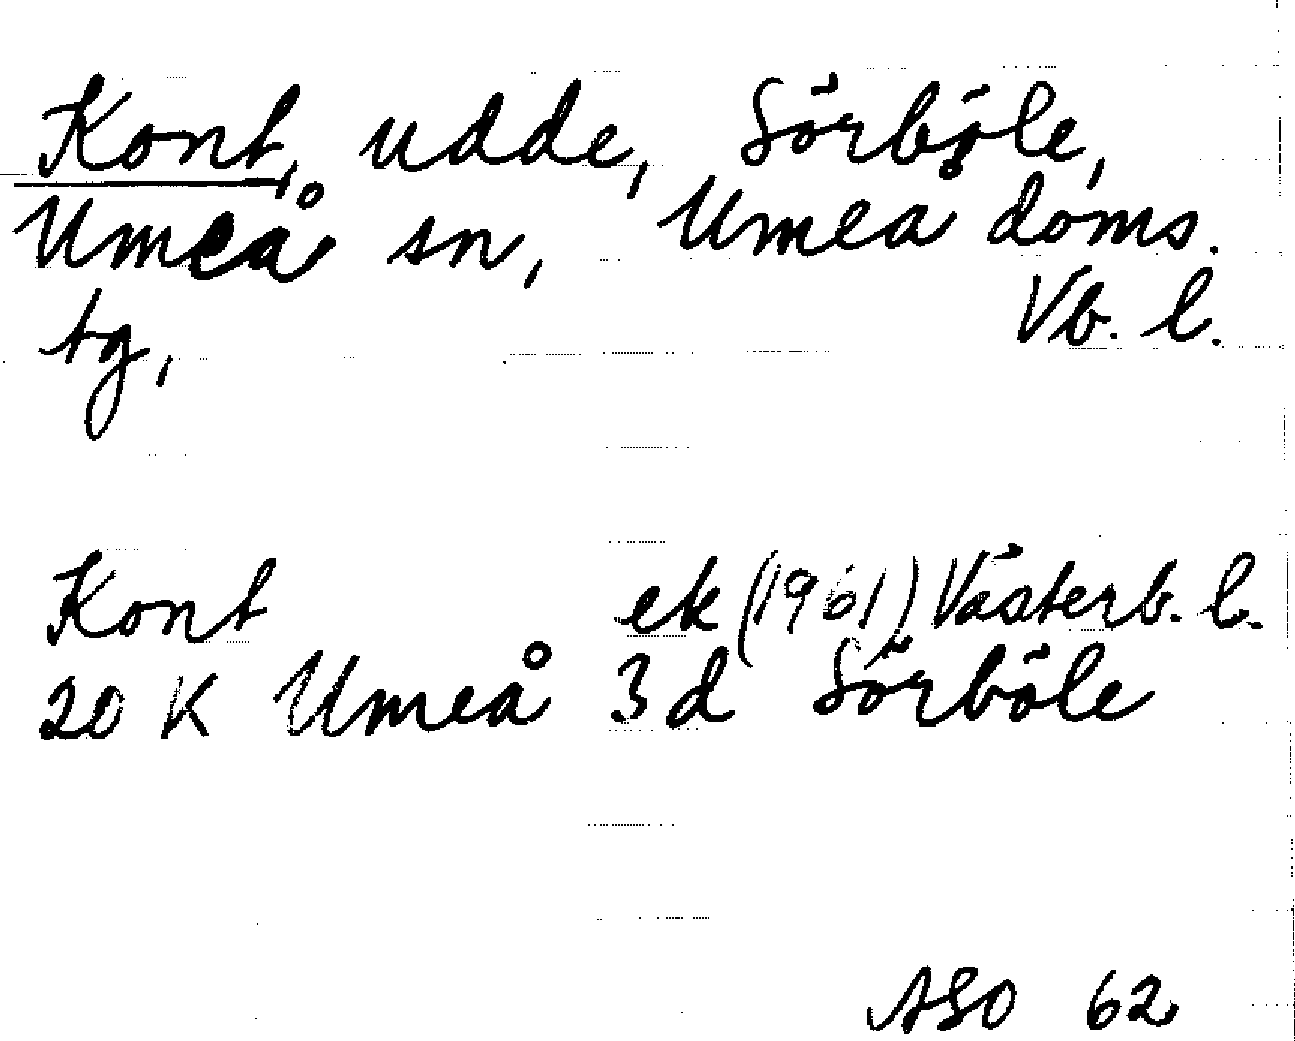 Kont, udde, Sörböle,
Umeå sn, Umeå doms.
tg, Vb. l.
Kont ek (1961) Västerb. l.
20 K Umeå 3 d Sörböle
ASO 62